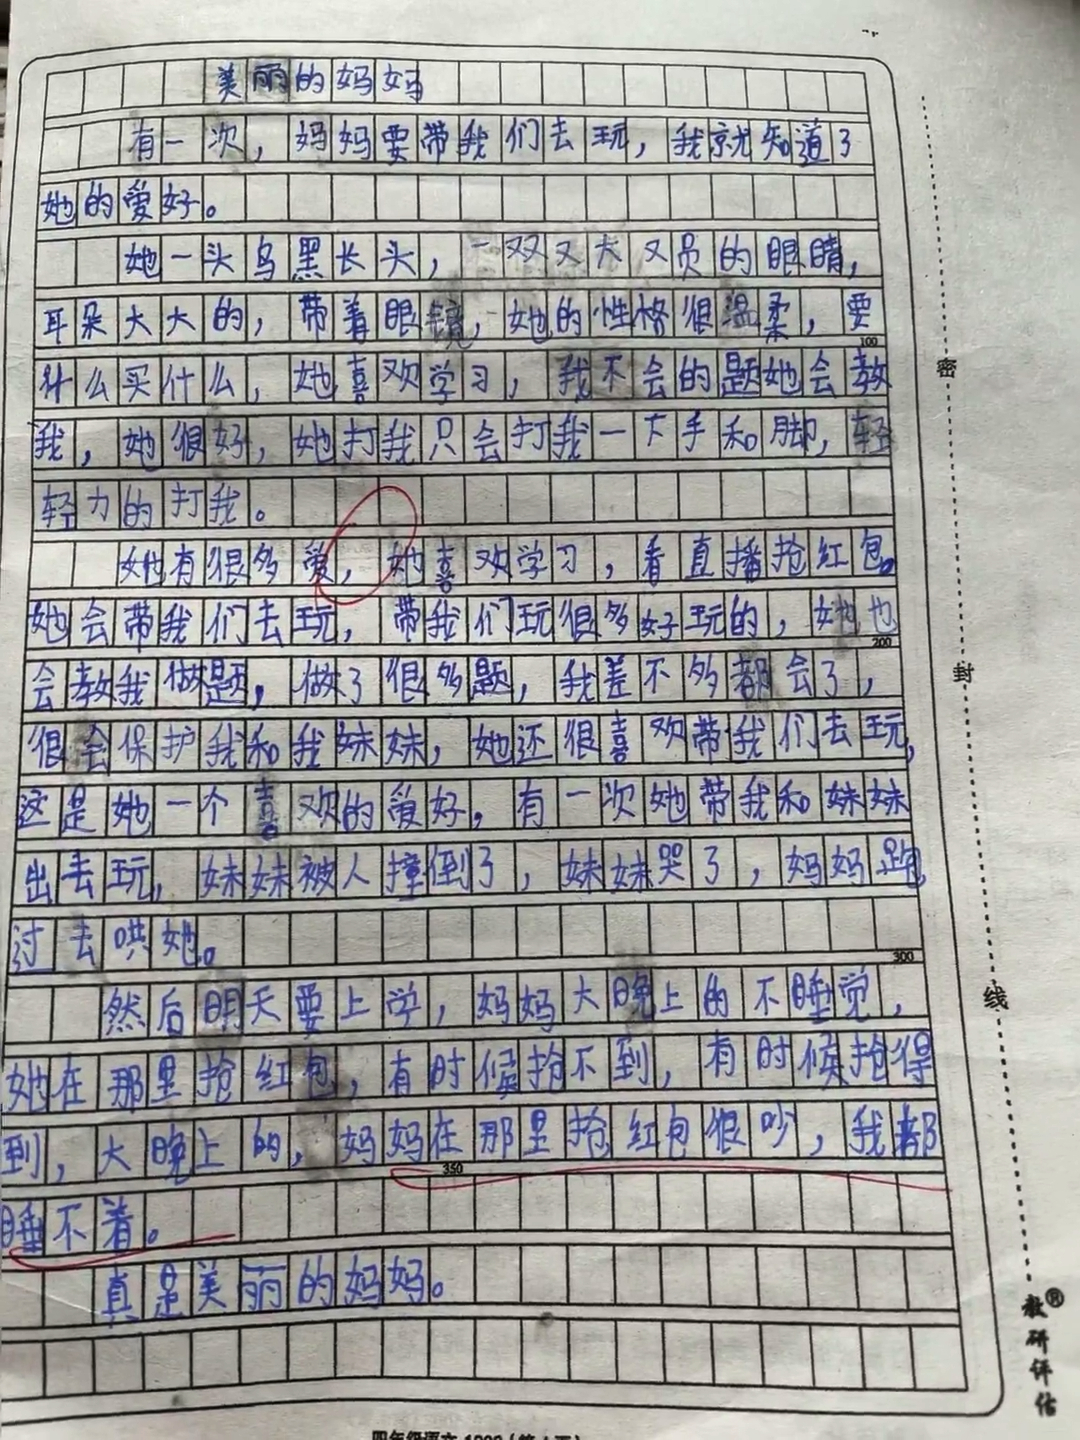 美丽的妈妈
有一次，妈妈要带我们去玩，我就知道了
她的爱好。
她一头乌黑长头，一双又大又员的眼睛，
耳朵大大的，带着眼镜，她的性格很温柔，要
100
什么买什么，她喜欢学习，我不会的题她会教
我，她很好，她打我只会打我一下手和脚，轻
轻力的打我。
她有很多爱，她喜欢学习，看直播抢红包。
她会带我们去玩，带我们玩很多好玩的，她也
200
会教我做题，做了很多题，我差不多都会了，
很会保护我和我妹妹，她还很喜欢带我们去玩，
这是她一个喜欢的爱好，有一次她带我和妹妹
出去玩，妹妹被人撞倒了，妹妹哭了，妈妈跑
过去哄她。
300
然后明天要上学，妈妈大晚上的不睡觉，
她在那里抢红包，有时候抢不到，有时候抢得
到，大晚上的，妈妈在那里抢红包很吵，我都
350
睡不着。
真是美丽的妈妈。
密
封
线
教研评估®